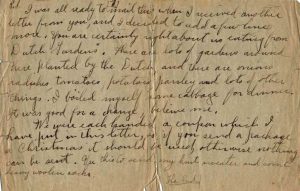 I was all ready to mail this when I received another
letter from you and I decided to add a few lines
more. You are certainly right about us eating from
Dutch Gardens. There are lots of gardens around
here planted by the Dutch and there are onions
radishes tomatoes, potatoes parsley and lots of other
things. I boiled myself some cabbage for dinner
it was good for a change, believe me.
We were each handed a coupon which I
have put in this letter, so if you send a package
for Christmas it should be used otherwise nothing
can be sent. Use this to send my knit sweater and some
heavy woolen socks.